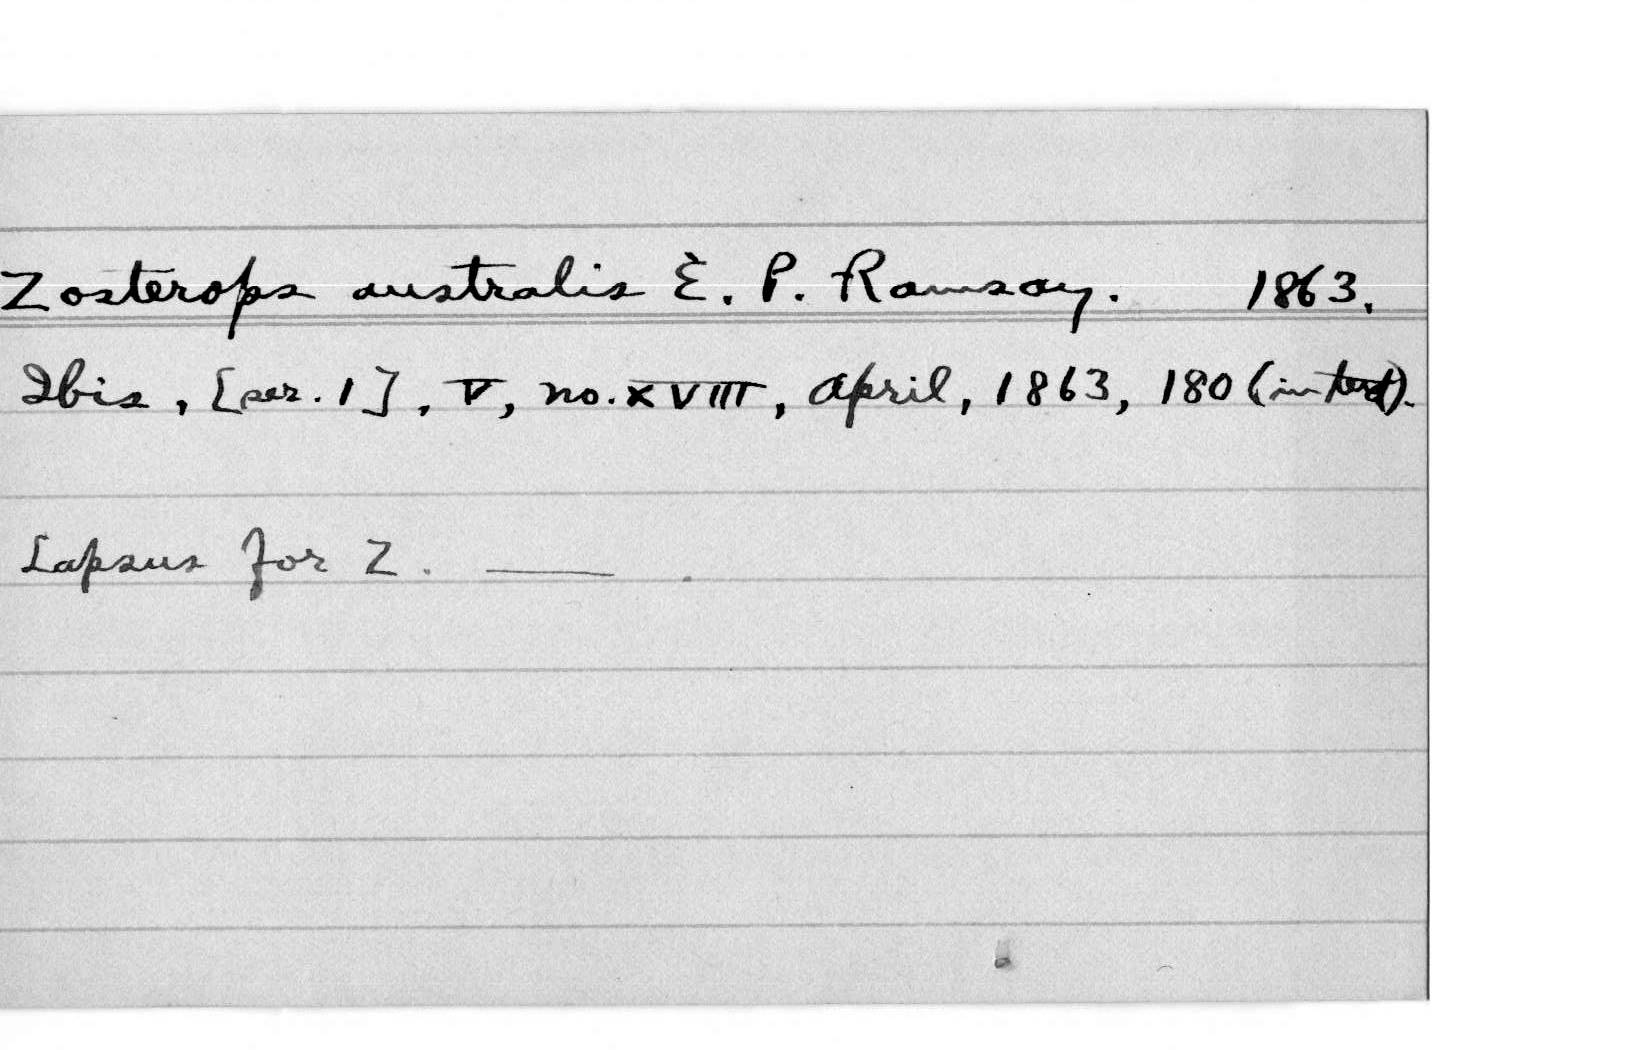 Zosterops australis E. P. Ramsay. 1863.
Ibis, [ser. 1], V, no. XVIII, April, 1863, 180 (in text).
Lapsus for Z. ___ .